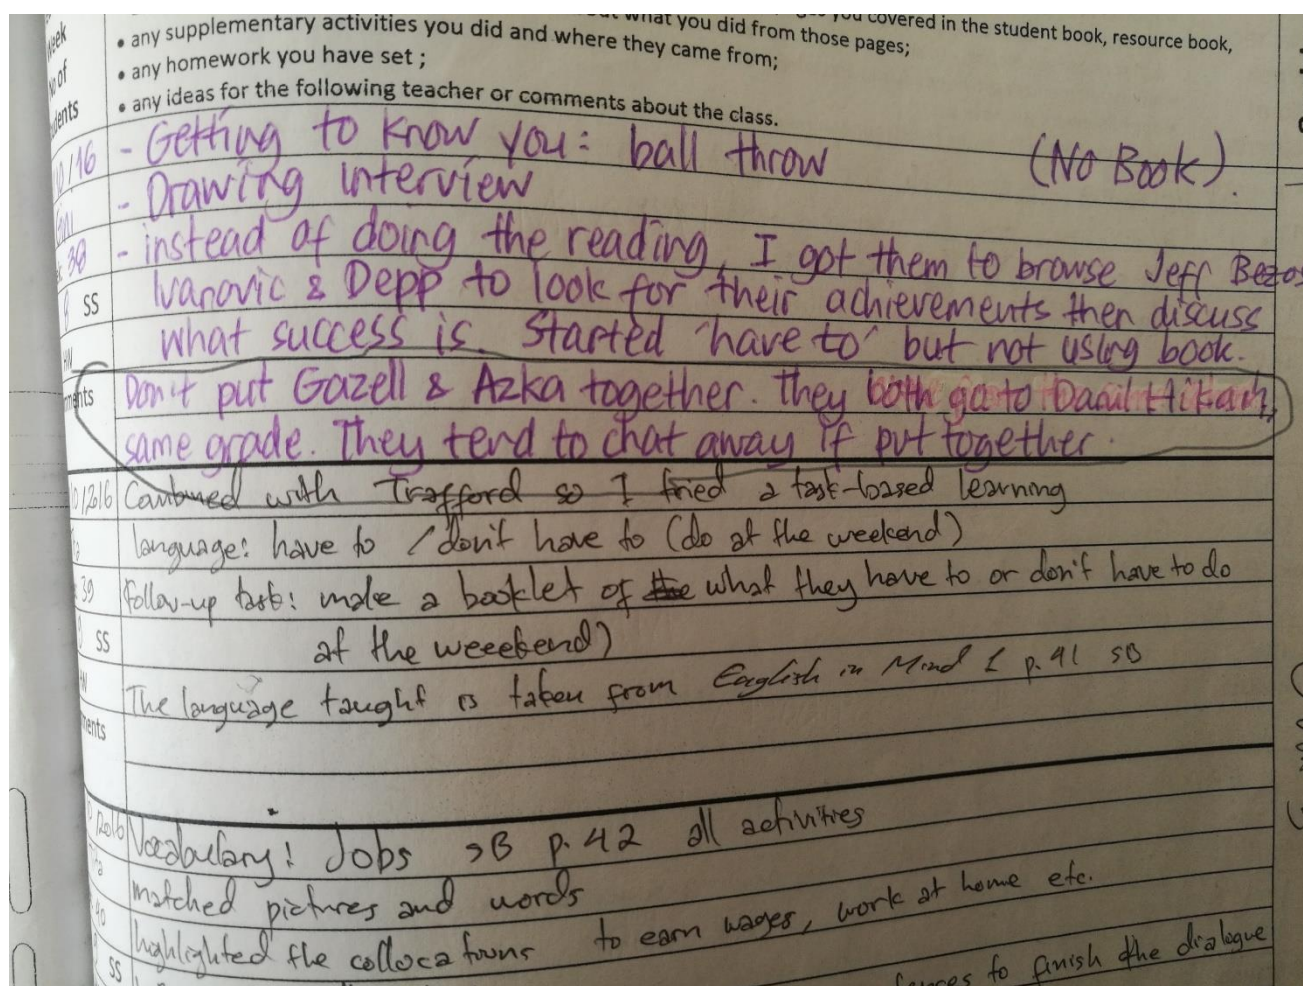 what you did from those pages; you covered in the student book, resource book,
• any supplementary activities you did and where they came from;
• any homework you have set ;
• any ideas for the following teacher or comments about the class.
- Getting to know you: ball throw (No Book).
- Drawing interview
- instead of doing the reading, I got them to browse Jeff Bezos
Ivanovic & Depp to look for their achievements then discuss
what success is. Started 'have to' but not using book.
Don't put Gazell & Azka together. They both go to Darul Hikam,
same grade. They tend to chat away if put together.
Combined with Trafford so I tried a task-based learning
language: have to / don't have to (do at the weekend)
follow-up task: make a booklet of the what they have to or don't have to do
at the weeekend)
The language taught is taken from English in Mind 1 p. 41 SB
Vocabulary: Jobs SB p. 42 all activities
matched pictures and words
highlighted the collocations to earn wages, work at home etc.
to finish the dialogue
week
No of
30
SS
39
SS
SS